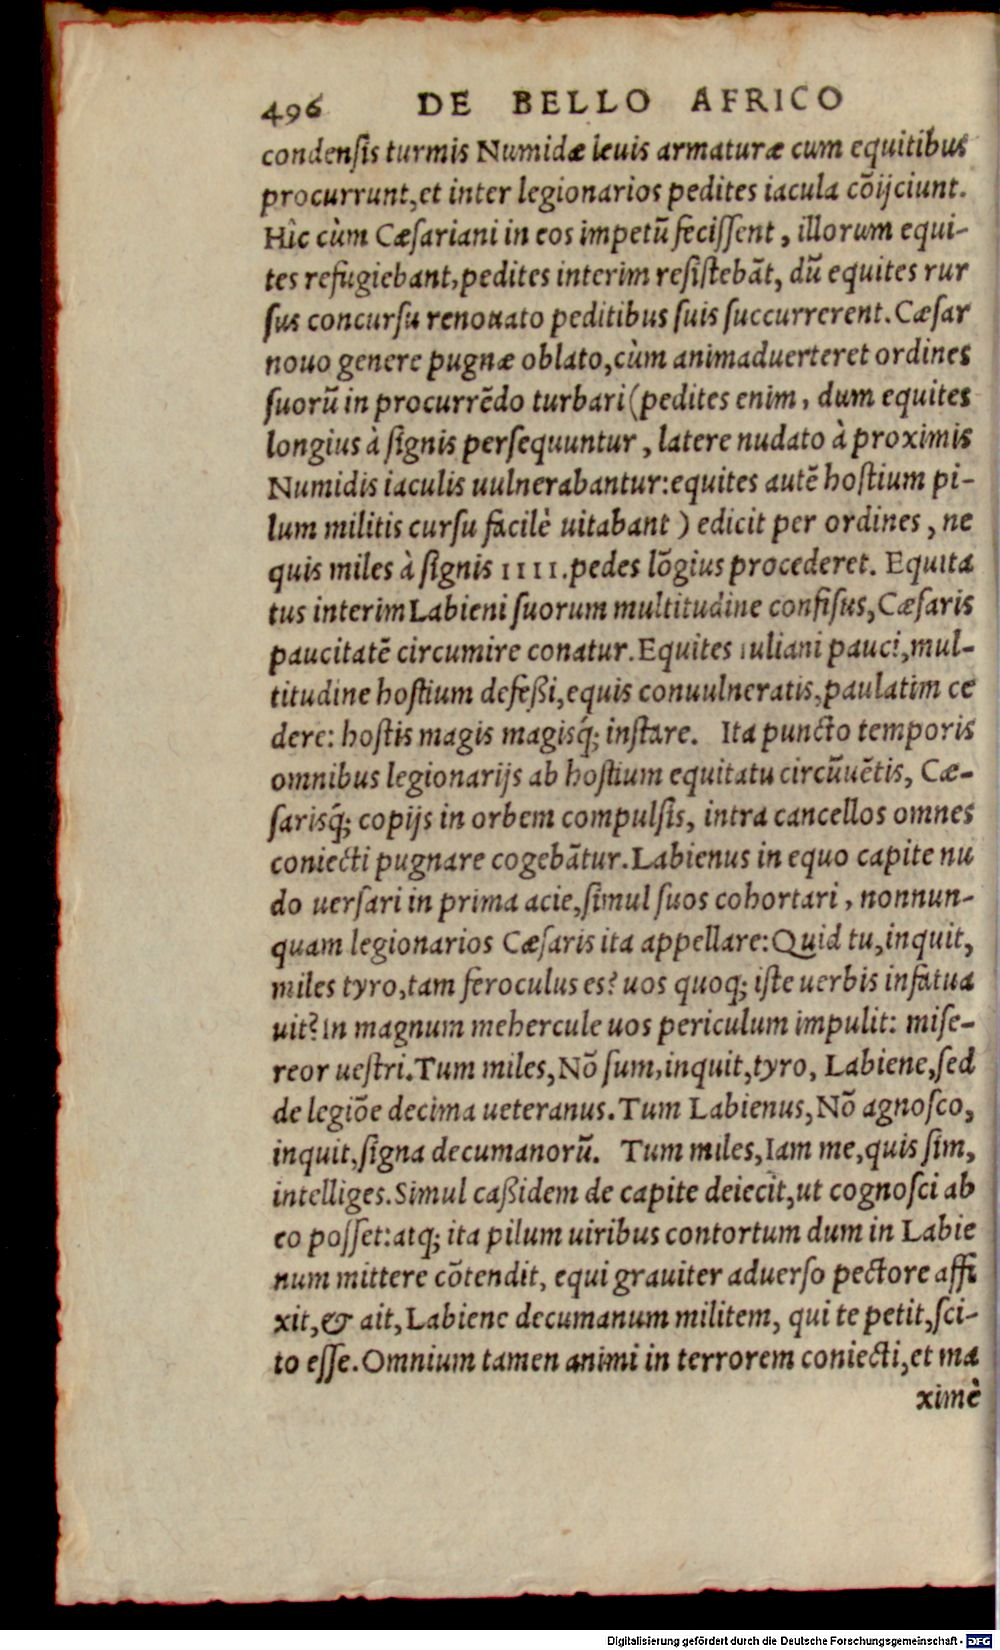 496 DE BELLO AFRICO
condensis turmis Numidæ leuis armaturæ cum equitibus
procurrunt, et inter legionarios pedites iacula cōijciunt.
Hîc cùm Cæsariani in eos impetū fecissent, illorum equi-
tes refugiebant, pedites interim resistebāt, dū equites rur
sus concursu renouato peditibus suis succurrerent. Cæsar
nouo genere pugnæ oblato, cùm animaduerteret ordines
suorū in procurrēdo turbari (pedites enim, dum equites
longius à signis persequuntur, latere nudato à proximis
Numidis iaculis uulnerabantur: equites autē hostium pi-
lum militis cursu facilè uitabant) edicit per ordines, ne
quis miles à signis IIII. pedes lōgius procederet. Equita
tus interim Labieni suorum multitudine confisus, Cæsaris
paucitatē circumire conatur. Equites iuliani pauci, mul-
titudine hostium defeßi, equis conuulneratis, paulatim ce
dere: hostis magis magisq́; instare. Ita puncto temporis
omnibus legionarijs ab hostium equitatu circūuētis, Cæ-
sarisq́; copijs in orbem compulsis, intra cancellos omnes
coniecti pugnare cogebātur. Labienus in equo capite nu
do uersari in prima acie, simul suos cohortari, nonnun-
quam legionarios Cæsaris ita appellare: Quid tu, inquit,
miles tyro, tam feroculus es? uos quoq; iste uerbis infatua
uit? in magnum mehercule uos periculum impulit: mise-
reor uestri. Tum miles, Nō sum, inquit, tyro, Labiene, sed
de legiōe decima ueteranus. Tum Labienus, Nō agnosco,
inquit, signa decumanorū. Tum miles, Iam me, quis sim,
intelliges. Simul caßidem de capite deiecit, ut cognosci ab
eo posset: atq; ita pilum uiribus contortum dum in Labie
num mittere cōtendit, equi grauiter aduerso pectore affi
xit, & ait, Labiene decumanum militem, qui te petit, sci-
to esse. Omnium tamen animi in terrorem coniecti, et ma
ximè
Digitalisierung gefördert durch die Deutsche Forschungsgemeinschaft - DFG